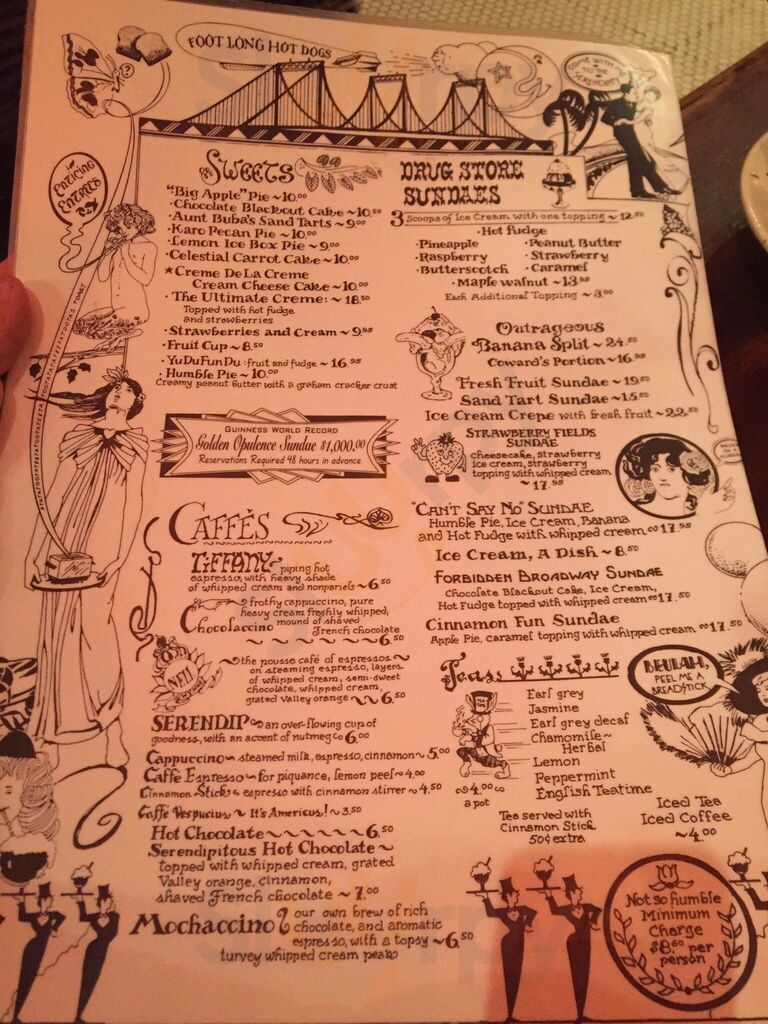 FOOT LONG HOT DOGS
COME WITH ME
SERENDIPITY
ENTICING
ENTREES
SWEETS
"Big Apple" Pie ~ 10.00
Chocolate Blackout Cake ~ 10.50
Aunt Buba's Sand Tarts ~ 9.00
Karo Pecan Pie ~ 10.00
Lemon Ice Box Pie ~ 9.00
Celestial Carrot Cake ~ 10.00
★ Creme De La Creme
Cream Cheese Cake ~ 10.00
The Ultimate Creme: ~ 18.50
Topped with hot fudge
and strawberries
Strawberries and Cream ~ 9.95
Fruit Cup ~ 8.50
YuDuFunDu: fruit and fudge ~ 16.95
Humble Pie ~ 10.00
Creamy peanut butter with a graham cracker crust
GUINNESS WORLD RECORD
Golden Opulence Sundae $1,000.00
Reservations Required 48 hours in advance
CAFFÈS
TIFFANY ~ piping hot
espresso, with heavy shade
of whipped cream and nonpariels ~ 6.50
frothy cappuccino, pure
heavy cream freshly whipped,
mound of shaved
Chocolaccino French chocolate
~ 6.50
NELL
~ the pousse café of espressos ~
on steaming espresso, layers
of whipped cream, semi-sweet
chocolate, whipped cream,
grated Valley orange ~ 6.50
SERENDIP ~ an over-flowing cup of
goodness, with an accent of nutmeg ~ 6.00
Cappuccino ~ steamed milk, espresso, cinnamon ~ 5.00
Caffe Espresso ~ for piquance, lemon peel ~ 4.00
Cinnamon Stick ~ espresso with cinnamon stirrer ~ 4.50
Caffe Vespucius ~ It's Americus! ~ 3.50
Hot Chocolate ~ 6.50
Serendipitous Hot Chocolate ~
topped with whipped cream, grated
Valley orange, cinnamon,
shaved French chocolate ~ 7.00
Mochaccino our own brew of rich
chocolate, and aromatic
espresso, with a topsy ~ 6.50
turvey whipped cream peak
DRUG STORE
SUNDAES
3 Scoops of Ice Cream with one topping ~ 12.50
Hot Fudge
Pineapple · Peanut Butter
Raspberry · Strawberry
Butterscotch · Caramel
Maple walnut ~ 13.95
Each Additional Topping ~ 3.00
Outrageous
Banana Split ~ 24.50
Coward's Portion ~ 16.95
Fresh Fruit Sundae ~ 19.50
Sand Tart Sundae ~ 15.50
Ice Cream Crepe with fresh fruit ~ 22.50
STRAWBERRY FIELDS
SUNDAE
Cheesecake, strawberry
ice cream, strawberry
topping with whipped cream
~ 17.95
"CAN'T SAY NO" SUNDAE
Humble Pie, Ice Cream, Banana
and Hot Fudge with whipped cream ~ 17.95
Ice Cream, A Dish ~ 8.50
FORBIDDEN BROADWAY SUNDAE
Chocolate Blackout Cake, Ice Cream,
Hot Fudge topped with whipped cream ~ 17.50
Cinnamon Fun Sundae
Apple Pie, caramel topping with whipped cream ~ 17.50
Teas
BEULAH,
PEEL ME A
BREADSTICK
Earl grey
Jasmine
Earl grey decaf
Chamomile ~
Herbal
Lemon
Peppermint
English Teatime
~ 4.00 ~
a pot
Tea served with
Cinnamon Stick
50¢ extra
Iced Tea
Iced Coffee
~ 4.00
Not so humble
Minimum
Charge
$8.50 per
person